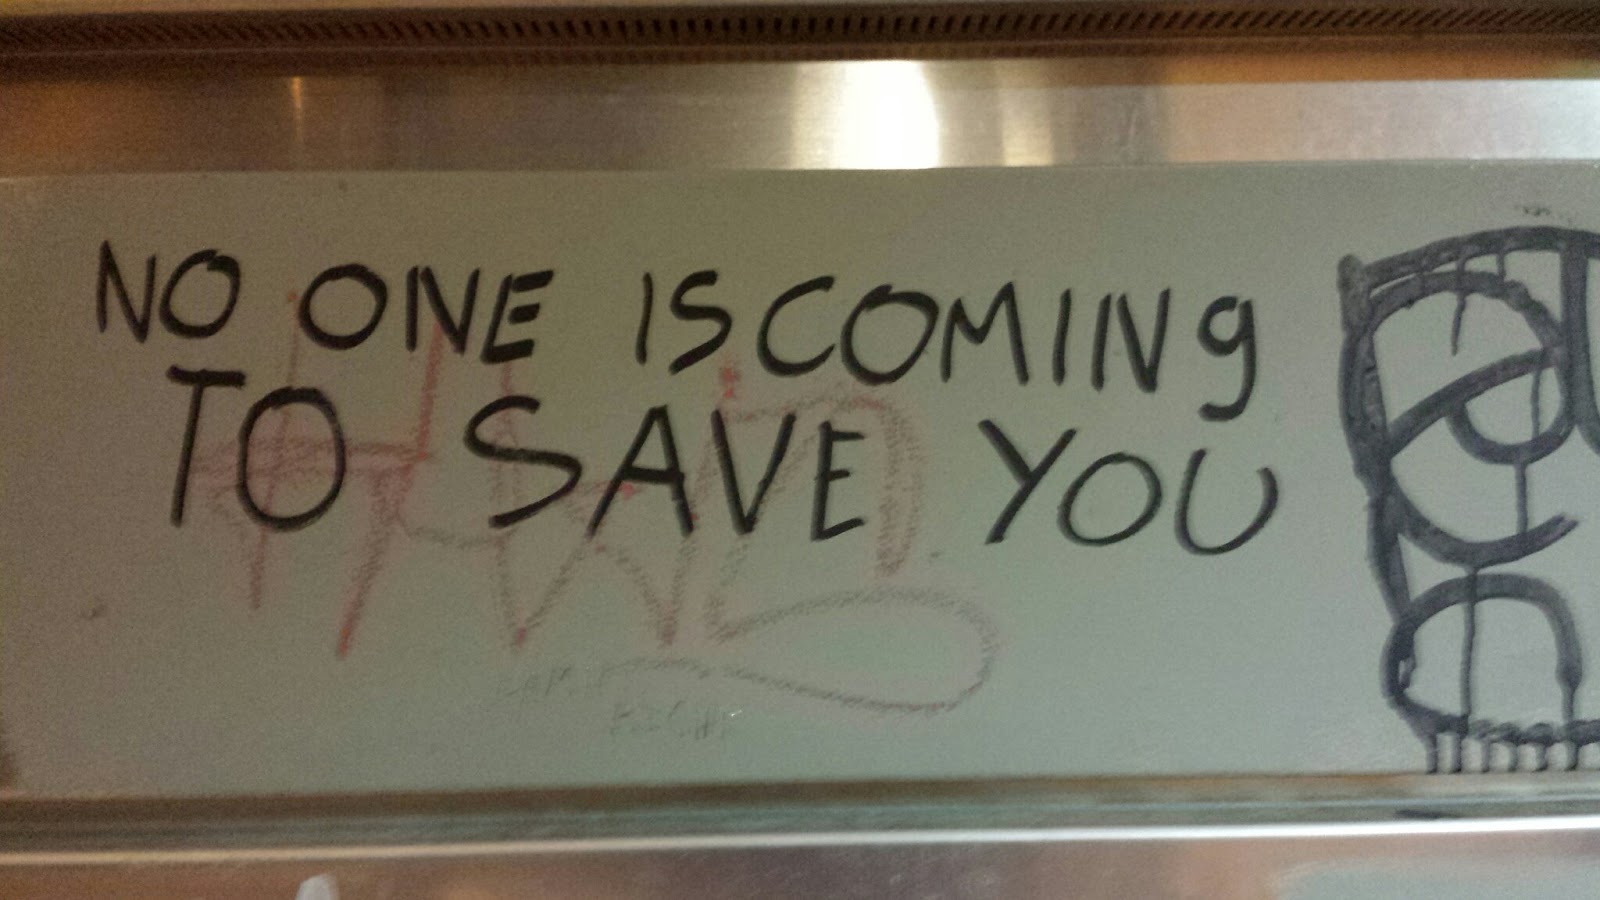 NO ONE IS COMINg
TO SAVE YOU